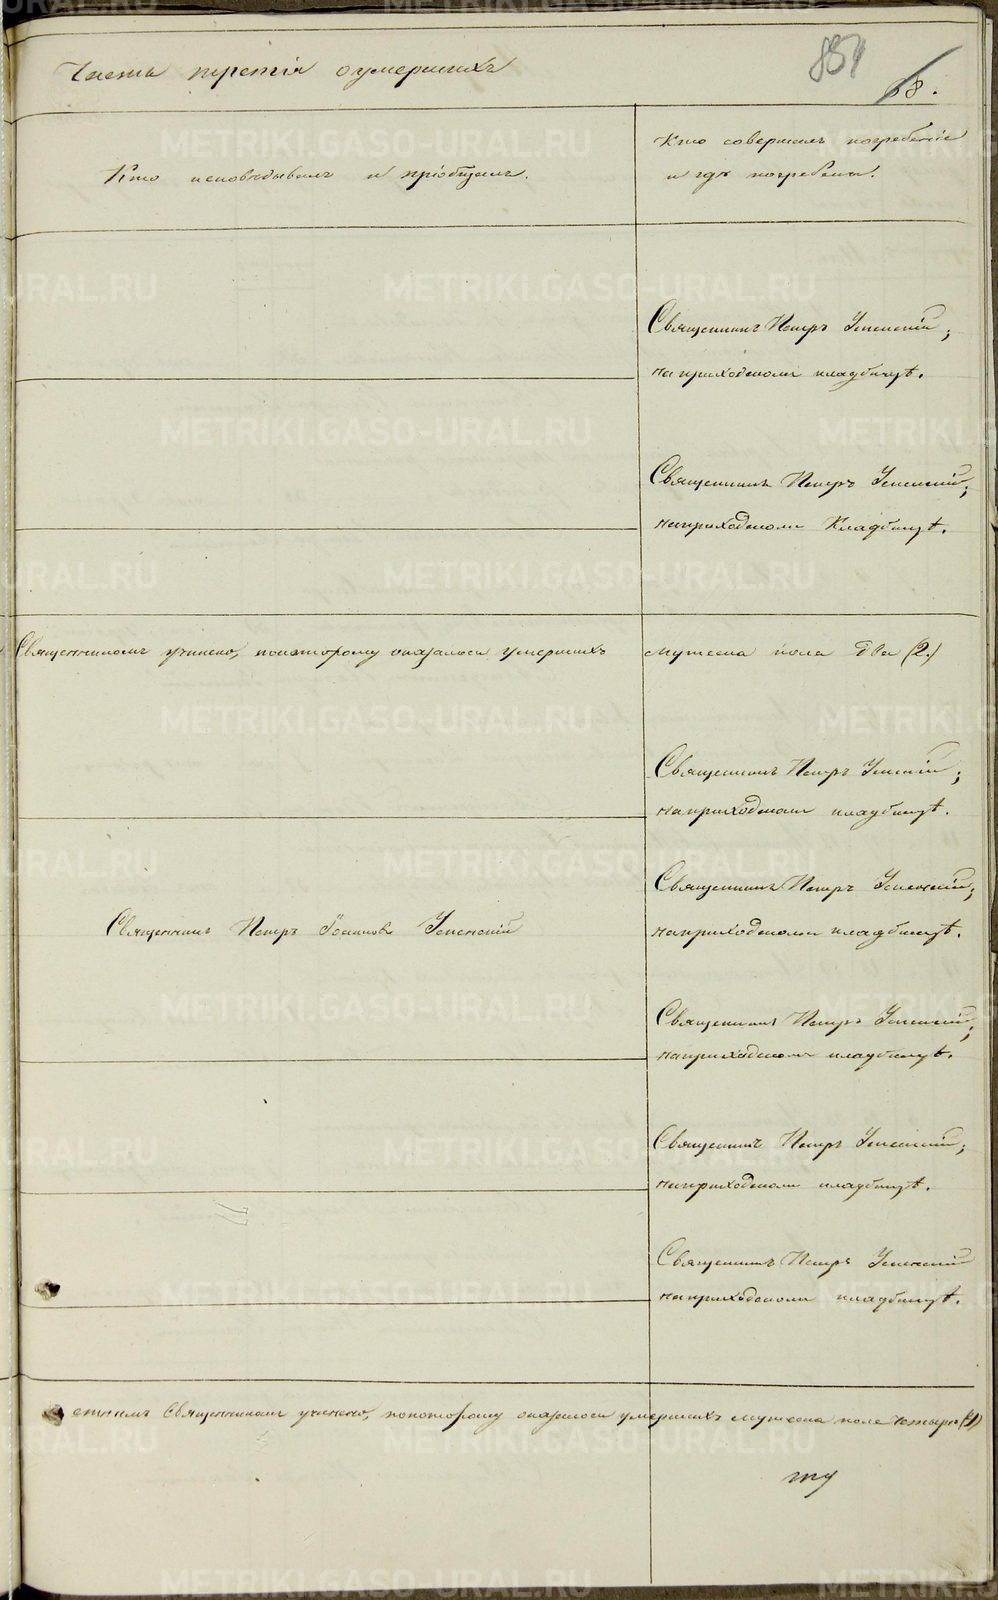 Часть третія о умершихъ
851
68.
Кто исповѣдывалъ и пріобщалъ.
Кто совершалъ погребеніе
и гдѣ погребены.
Священникъ Петръ Успенскій;
на приходскомъ кладбищѣ.
Священникъ Петръ Успенскій;
на приходскомъ Кладбищѣ.
Священникомъ учинено, по которому оказалось умершихъ мужеска пола два (2.)
Священникъ Петръ Успенскій;
на приходскомъ кладбищѣ.
Священникъ Петръ Іоанновъ Успенскій
Священникъ Петръ Успенскій;
на приходскомъ кладбищѣ.
Священникъ Петръ Успенскій;
на приходскомъ кладбищѣ.
Священникъ Петръ Успенскій;
на приходскомъ кладбищѣ.
Священникъ Петръ Успенскій
на приходскомъ кладбищѣ.
стнымъ Священникомъ учинено, по которому оказалось умершихъ мужеска пола четыре (4)
ту
METRIKI.GASO-URAL.RU